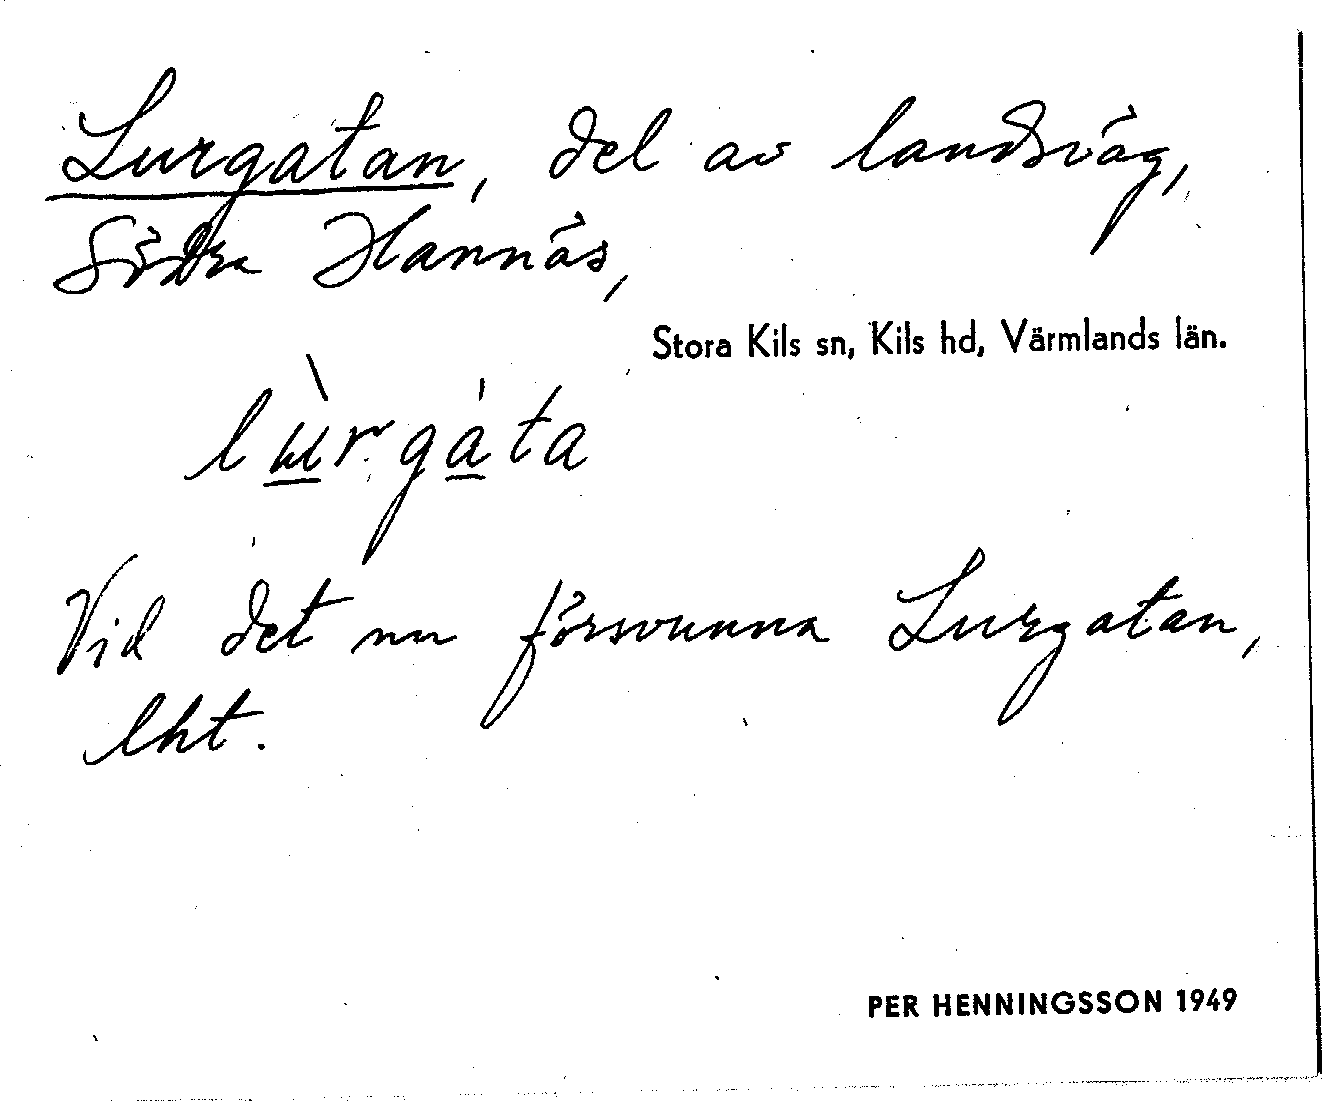 Lurgatan, del av landsväg,
Södra Hannäs,
Stora Kils sn, Kils hd, Värmlands län.
lùrgáta
Vid det nu försvunna Lurgatan,
lht.
PER HENNINGSSON 1949